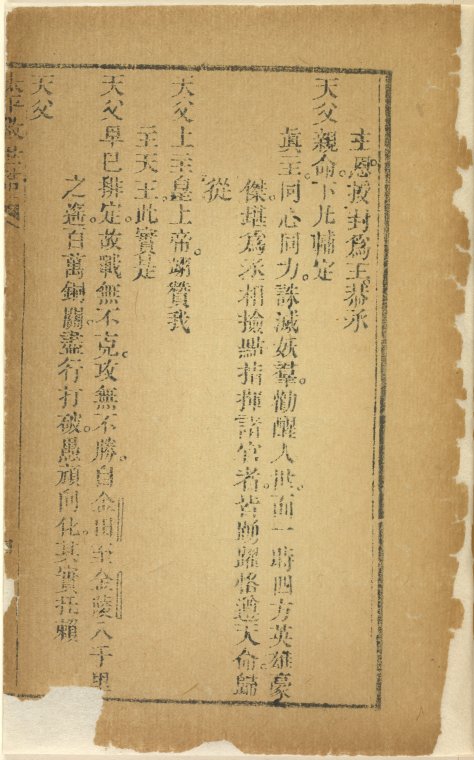 主恩授封爲王恭承
天父親命下凡輔定
眞主同心同力誅滅妖羣勸醒人世而一時四方英雄豪
傑堪爲丞相檢點指揮諸官者皆踴躍恪遵天命歸
從
天父上主皇上帝翊贊我
主天王此實是
天父早已排定故戰無不克攻無不勝自金田至金陵八千里
之遙百萬銅關盡行打破愚頑向化其實在賴
天父
太平救世